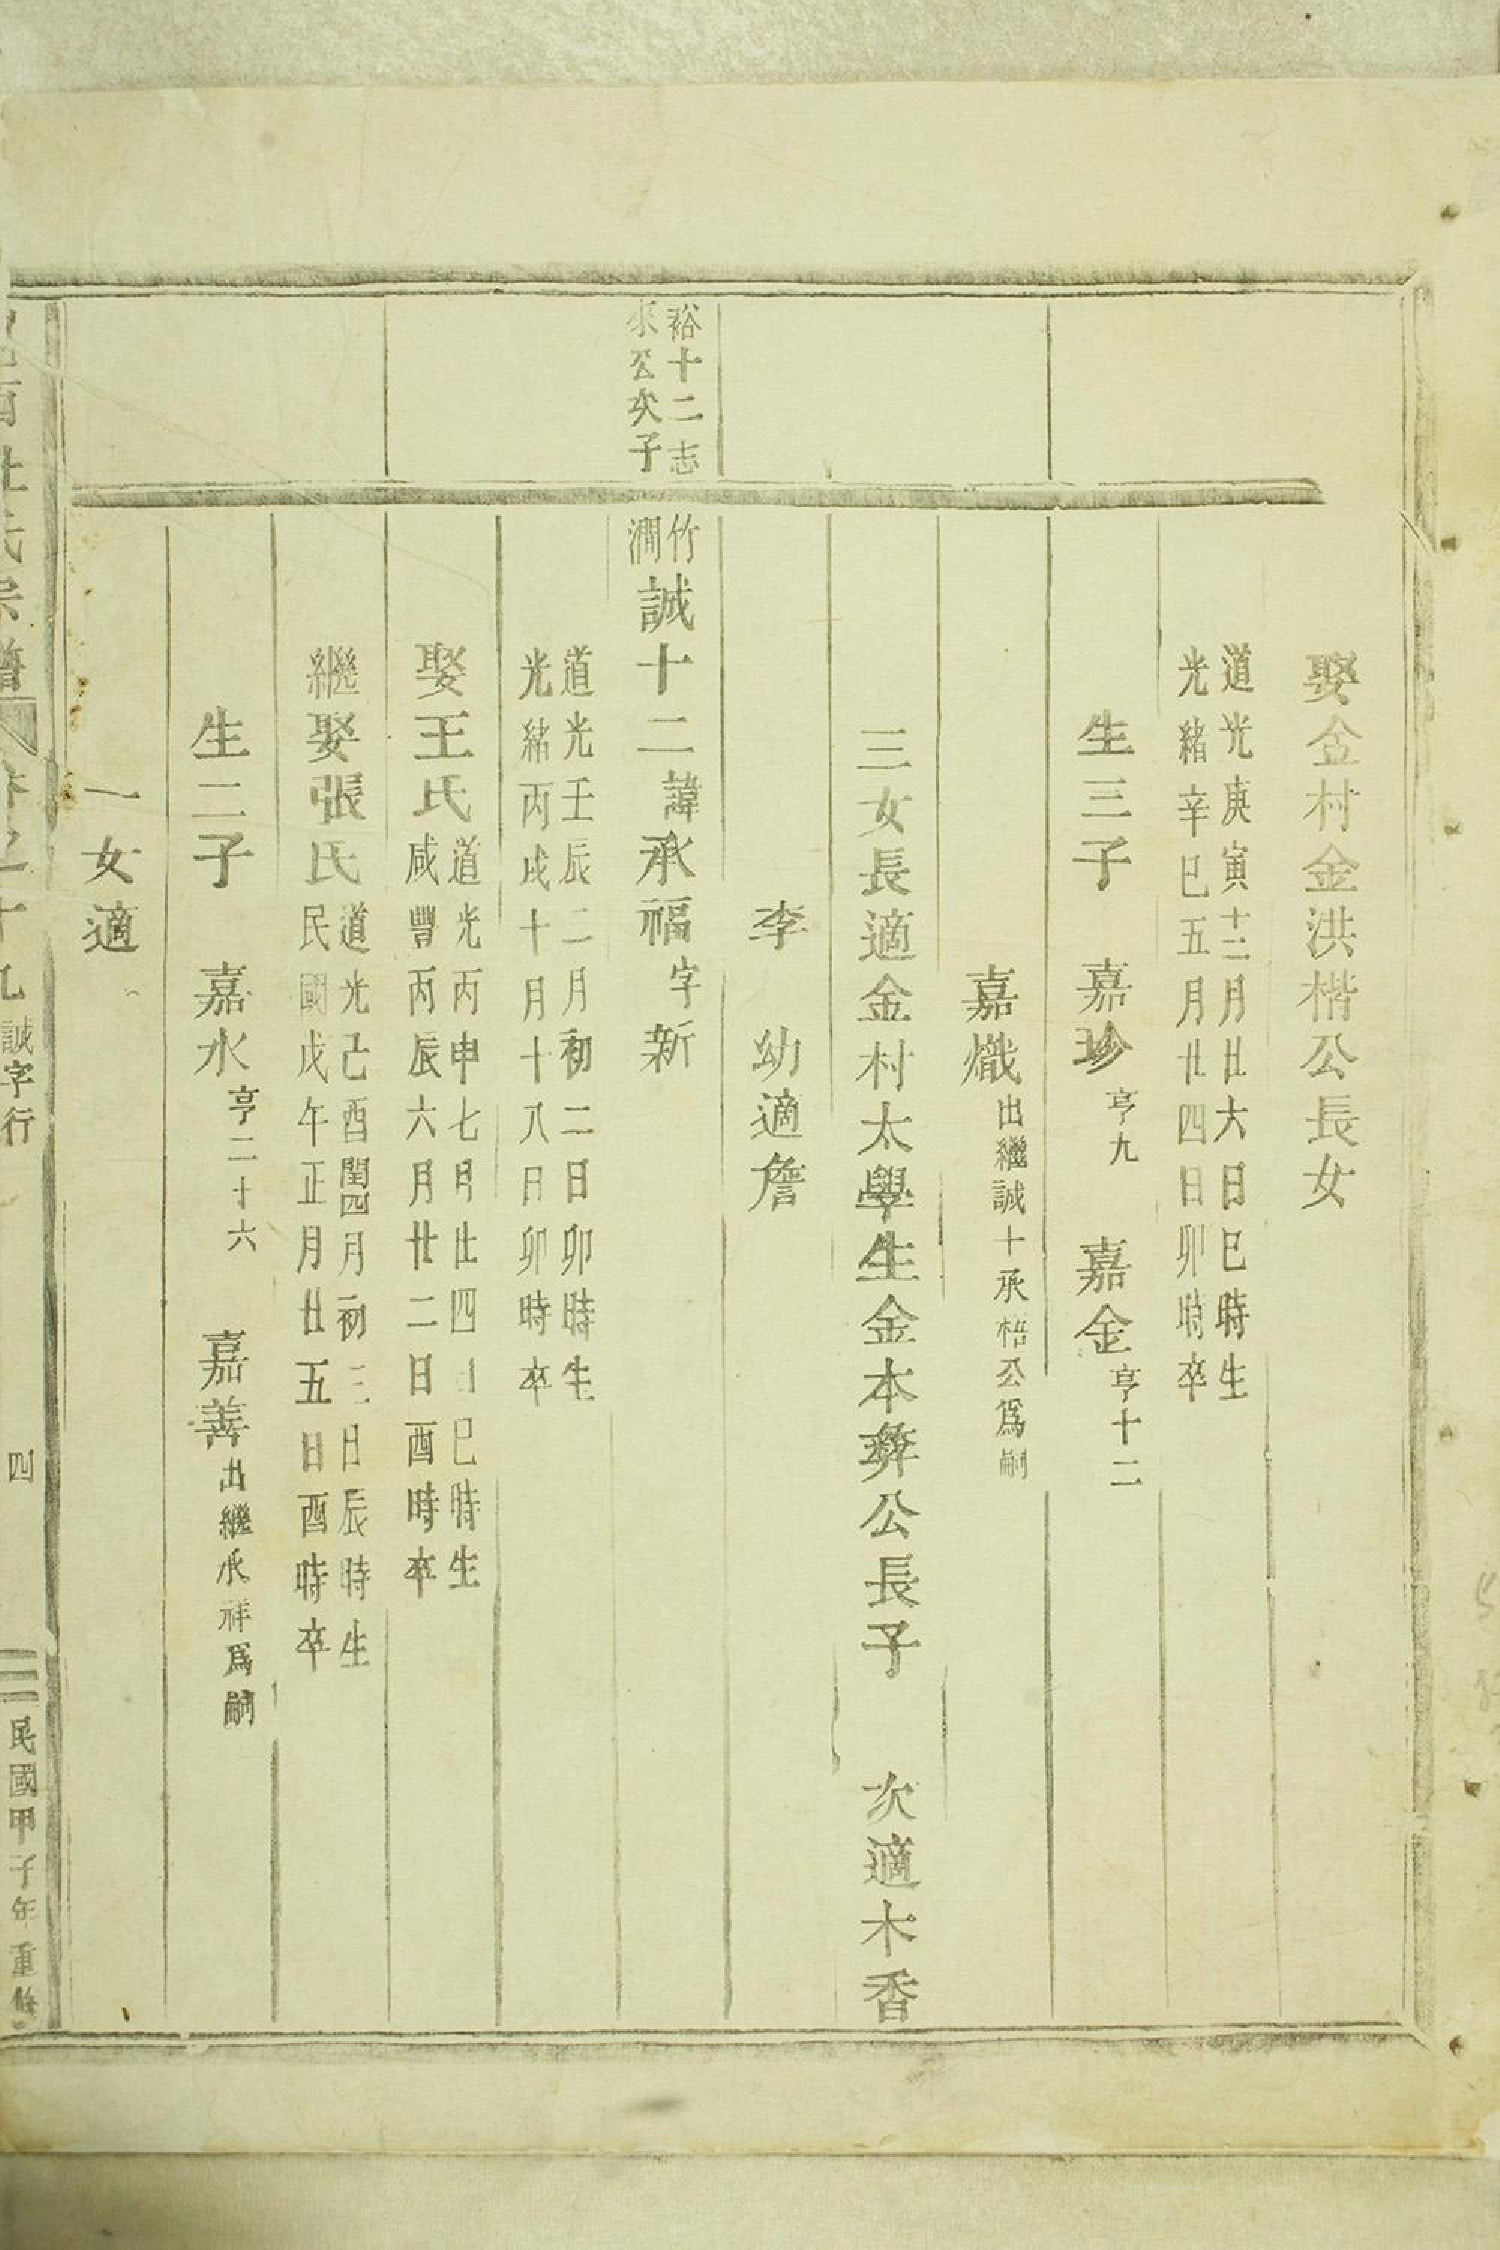 娶金村金洪楷公長女
道光庚寅十二月廿六日巳時生
光緒辛巳五月廿四日卯時卒
生三子 嘉珍亨九 嘉金亨十二
嘉熾出繼誠十承梧公爲嗣
三女長適金村太學生金本彜公長子 次適木香
李 幼適詹
裕十二志
來公次子
竹澗誠十二諱承福字新
道光壬辰二月初二日卯時生
光緒丙戌十月十八日卯時卒
娶王氏道光丙申七月廿四日巳時生
咸豐丙辰六月廿二日酉時卒
繼娶張氏道光己酉閏四月初三日辰時生
民國戊午正月廿五日酉時卒
生二子 嘉水亨二十六 嘉善出繼承祥爲嗣
一女適
杜氏宗譜 卷之十九 誠字行 四 民國甲子年重修